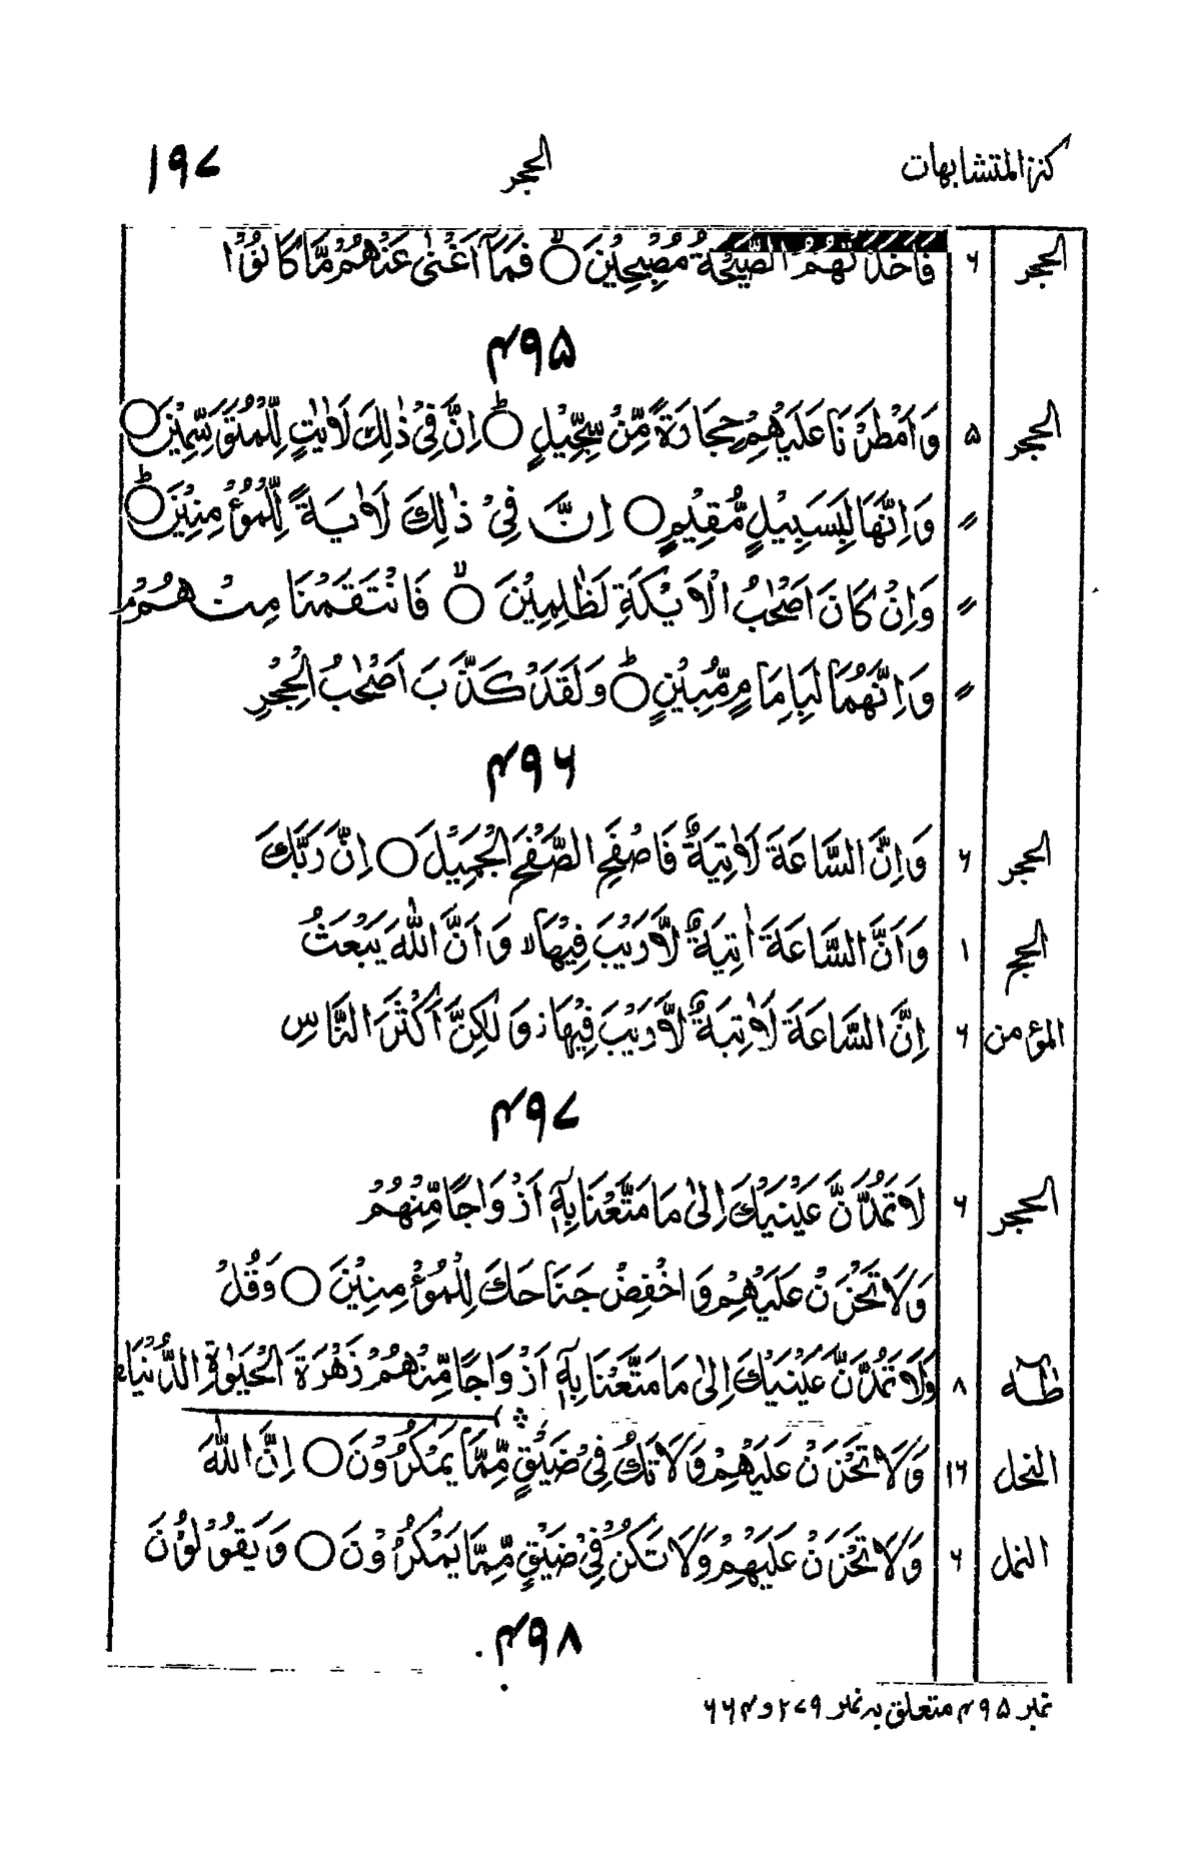 كنز المتشابهات الحجر ١٩٧
الحجر ۶ فَاَخَذَتْهُمُ الصَّيْحَةُ مُصْبِحِيْنَ ○ فَمَآ اَغْنٰى عَنْهُمْ مَّا كَانُوْا
۴۹۵
الحجر ۵ وَاَمْطَرْنَا عَلَيْهِمْ حِجَارَةً مِّنْ سِجِّيْلٍ ○ اِنَّ فِيْ ذٰلِكَ لَاٰيٰتٍ لِّلْمُتَوَسِّمِيْنَ ○
〃 وَاِنَّهَا لَبِسَبِيْلٍ مُّقِيْمٍ ○ اِنَّ فِيْ ذٰلِكَ لَاٰيَةً لِّلْمُؤْمِنِيْنَ ○
〃 وَاِنْ كَانَ اَصْحٰبُ الْاَيْكَةِ لَظٰلِمِيْنَ ○ فَانْتَقَمْنَا مِنْهُمْ
〃 وَاِنَّهُمَا لَبِاِمَامٍ مُّبِيْنٍ ○ وَلَقَدْ كَذَّبَ اَصْحٰبُ الْحِجْرِ
۴۹۶
الحجر ۶ وَاِنَّ السَّاعَةَ لَاٰتِيَةٌ فَاصْفَحِ الصَّفْحَ الْجَمِيْلَ ○ اِنَّ رَبَّكَ
الحج ١ وَاَنَّ السَّاعَةَ اٰتِيَةٌ لَّا رَيْبَ فِيْهَا لا وَاَنَّ اللّٰهَ يَبْعَثُ
المؤمن ۶ اِنَّ السَّاعَةَ لَاٰتِيَةٌ لَّا رَيْبَ فِيْهَا ز وَلٰكِنَّ اَكْثَرَ النَّاسِ
۴۹۷
الحجر ۶ لَا تَمُدَّنَّ عَيْنَيْكَ اِلٰى مَا مَتَّعْنَا بِهٖٓ اَزْوَاجًا مِّنْهُمْ
وَلَا تَحْزَنْ عَلَيْهِمْ وَاخْفِضْ جَنَاحَكَ لِلْمُؤْمِنِيْنَ ○ وَقُلْ
طٰهٰ ۸ وَلَا تَمُدَّنَّ عَيْنَيْكَ اِلٰى مَا مَتَّعْنَا بِهٖٓ اَزْوَاجًا مِّنْهُمْ زَهْرَةَ الْحَيٰوةِ الدُّنْيَا
النحل ١۶ وَلَا تَحْزَنْ عَلَيْهِمْ وَلَا تَكُ فِيْ ضَيْقٍ مِّمَّا يَمْكُرُوْنَ ○ اِنَّ اللّٰهَ
النمل ۶ وَلَا تَحْزَنْ عَلَيْهِمْ وَلَا تَكُنْ فِيْ ضَيْقٍ مِّمَّا يَمْكُرُوْنَ ○ وَيَقُوْلُوْنَ
۴۹۸
نمبر ۴۹۵ متعلق بہ نمبر ۲۷۹ و ۴۶۶